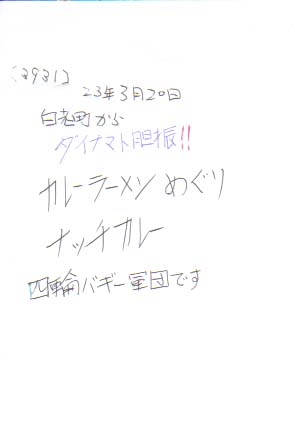 (3931)
23年3月20日
白老町から
ダイナマト胆振!!
カレーラーメンめぐり
ナッチカレー
四輪バギー軍団です